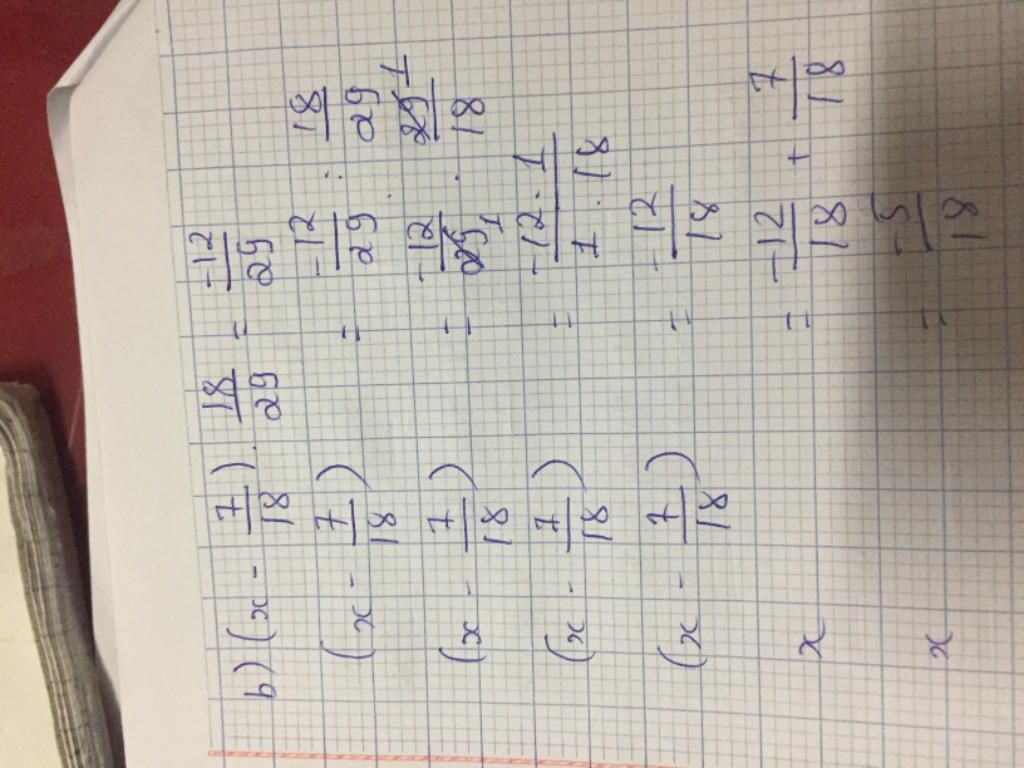 b) (x - 7/18) . 18/29 = -12/29
(x - 7/18) = -12/29 : 18/29
(x - 7/18) = -12/29 1 . 29 1/18
(x - 7/18) = -12 . 1/1 . 18
(x - 7/18) = -12/18
x = -12/18 + 7/18
x = -5/18